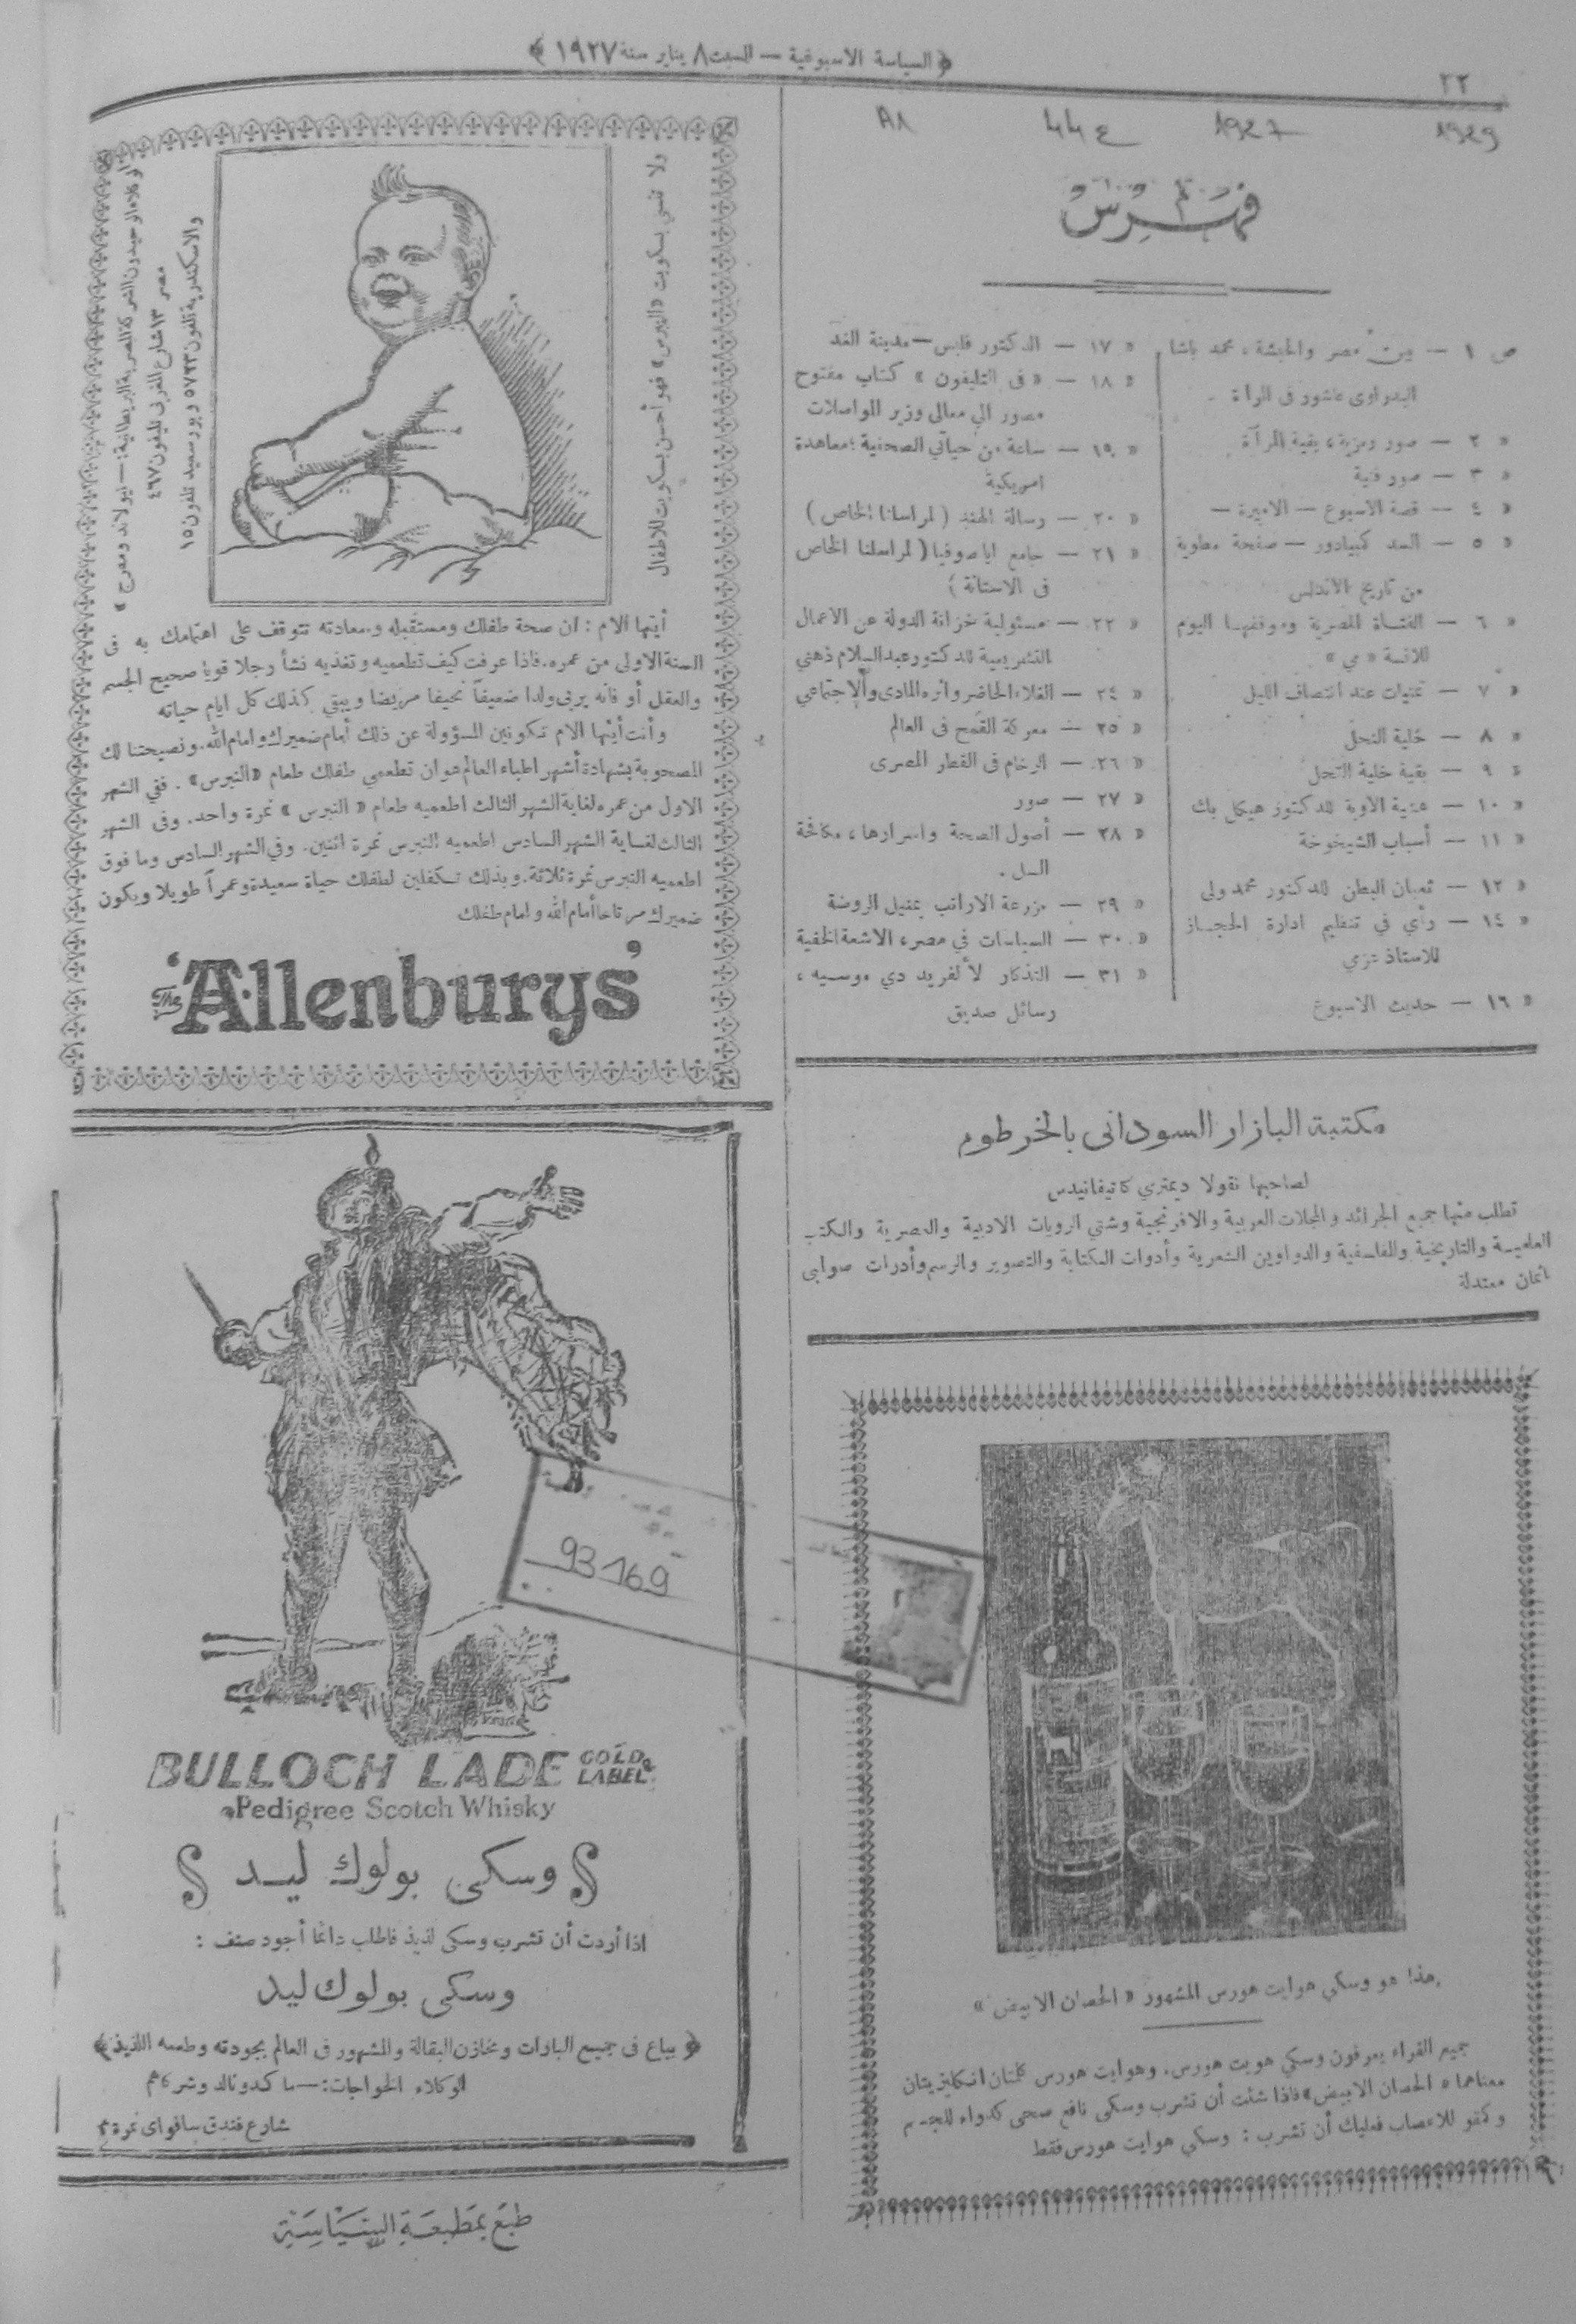 ﴿ السياسة الاسبوعية — السبت ٨ يناير سنة ١٩٢٧ ﴾
٢٢
1927
1929
فهرس
ص ١ — بين مصر والحبشة ، محمد باشا
البدراوى عاشور فى المرآة
« ٢ — صور رمزية ، بقية المرآة
« ٣ — صور فنية
« ٤ — قصة الاسبوع — الاميرة —
« ٥ — السد كمبيادور — صفحة مطوية
من تاريخ الاندلس
« ٦ — الفتاة المصرية وموقفها اليوم
للآنسة « مي »
« ٧ — تمنيات عند انتصاف الليل
« ٨ — خلية النحل
« ٩ — بقية خلية النحل
« ١٠ — عزبة الأوبة للدكتور هيكل بك
« ١١ — أسباب الشيخوخة
« ١٢ — ثعبان البطن للدكتور محمد ولى
« ١٤ — رأي في تنظيم ادارة الحجاز
للاستاذ عزي
« ١٦ — حديث الاسبوع
« ١٧ — الدكتور فابس — مدينة الغد
« ١٨ — « فى التليفون » كتاب مفتوح
مصور الي معالى وزير المواصلات
« ١٩ — ساعة من حياتي الصحفية ؛ معاهدة
امريكية
« ٢٠ — رسالة الهند ( لمراسلنا الخاص )
« ٢١ — جامع اياصوفيا ( لمراسلنا الخاص
فى الاستانة )
« ٢٢ — مسئولية خزانة الدولة عن الاعمال
التشريعية للدكتور عبد السلام ذهني
« ٢٤ — الغلاء الحاضر واثره المادى والاجتماعي
« ٢٥ — معركة القمح فى العالم
« ٢٦ — الرخام فى القطر المصرى
« ٢٧ — صور
« ٢٨ — أصول الصحة واسرارها ، مكافحة
السل .
« ٢٩ — مزرعة الارانب بمنيل الروضة
« ٣٠ — السياسات في مصر ، الاشعة الخفية
« ٣١ — التذكار لألفريد دي موسيه ،
رسائل صديق
مكتبة البازار السودانى بالخرطوم
لصاحبها نقولا ديمتري كاتيفانيدس
تطلب منها جميع الجرائد والمجلات العربية والافرنجية وشتى الروايات الادبية والعصرية والكتب
العلمية والتاريخية والفلسفية والدواوين الشعرية وأدوات الكتابة والتصوير والرسم وأدوات صوابى
باثمان معتدلة
هذا هو وسكي هوايت هورس المشهور « الحصان الابيض »
جميع القراء يعرفون وسكي هويت هورس . وهوايت هورس كلمتان انكليزيتان
معناهما « الحصان الابيض » فاذا شئت أن تشرب وسكى نافع صحى كدواء للجسم
وكمقو للاعصاب فعليك أن تشرب : وسكي هوايت هورس فقط
ولا تنسي بسكويت « النبرس » فهو أحسن بسكويت للاطفال
الوكلاء الوحيدون الشركة المصرية البريطانية : —
مصر ١٣ شارع المغربى تليفون ٤٦٧
والاسكندرية تلفون ٥٧٣٣ وبورسعيد تلفون ١٥
أيتها الام : ان صحة طفلك ومستقبله وسعادته تتوقف على اهتمامك به فى
السنة الاولى من عمره . فاذا عرفت كيف تطعميه وتغذيه نشأ رجلا قويا صحيح الجسم
والعقل أو فانه يربى ولدا ضعيفاً نحيفا مريضا ويبقى كذلك كل ايام حياته
وأنت أيتها الام تكونين المسؤولة عن ذلك أمام ضميرك وامام الله . ونصيحتنا لك
المصحوبة بشهادة أشهر اطباء العالم هو ان تطعمي طفلك طعام « النبرس » . ففي الشهر
الاول من عمره لغاية الشهر الثالث اطعميه طعام « النبرس » نمرة واحد . وفى الشهر
الثالث لغاية الشهر السادس اطعميه النبرس نمرة اثنين . وفي الشهر السادس وما فوق
اطعميه النبرس نمرة ثلاثة . وبذلك تكفلين لطفلك حياة سعيدة وعمراً طويلا ويكون
ضميرك مرتاحا أمام الله وامام طفلك
The 'Allenburys'
93169
BULLOCH LADE GOLD LABEL
Pedigree Scotch Whisky
وسكى بولوك ليد
اذا أردت أن تشرب وسكى لذيذ فاطلب دائما أجود صنف :
وسكى بولوك ليد
﴿ يباع فى جميع البارات ومخازن البقالة والمشهور فى العالم بجودته وطعمه اللذيذ ﴾
الوكلاء الخواجات : — ماكدونالد وشركاهم
شارع فندق سافواى نمرة ٣
طبع بمطبعة السياسة